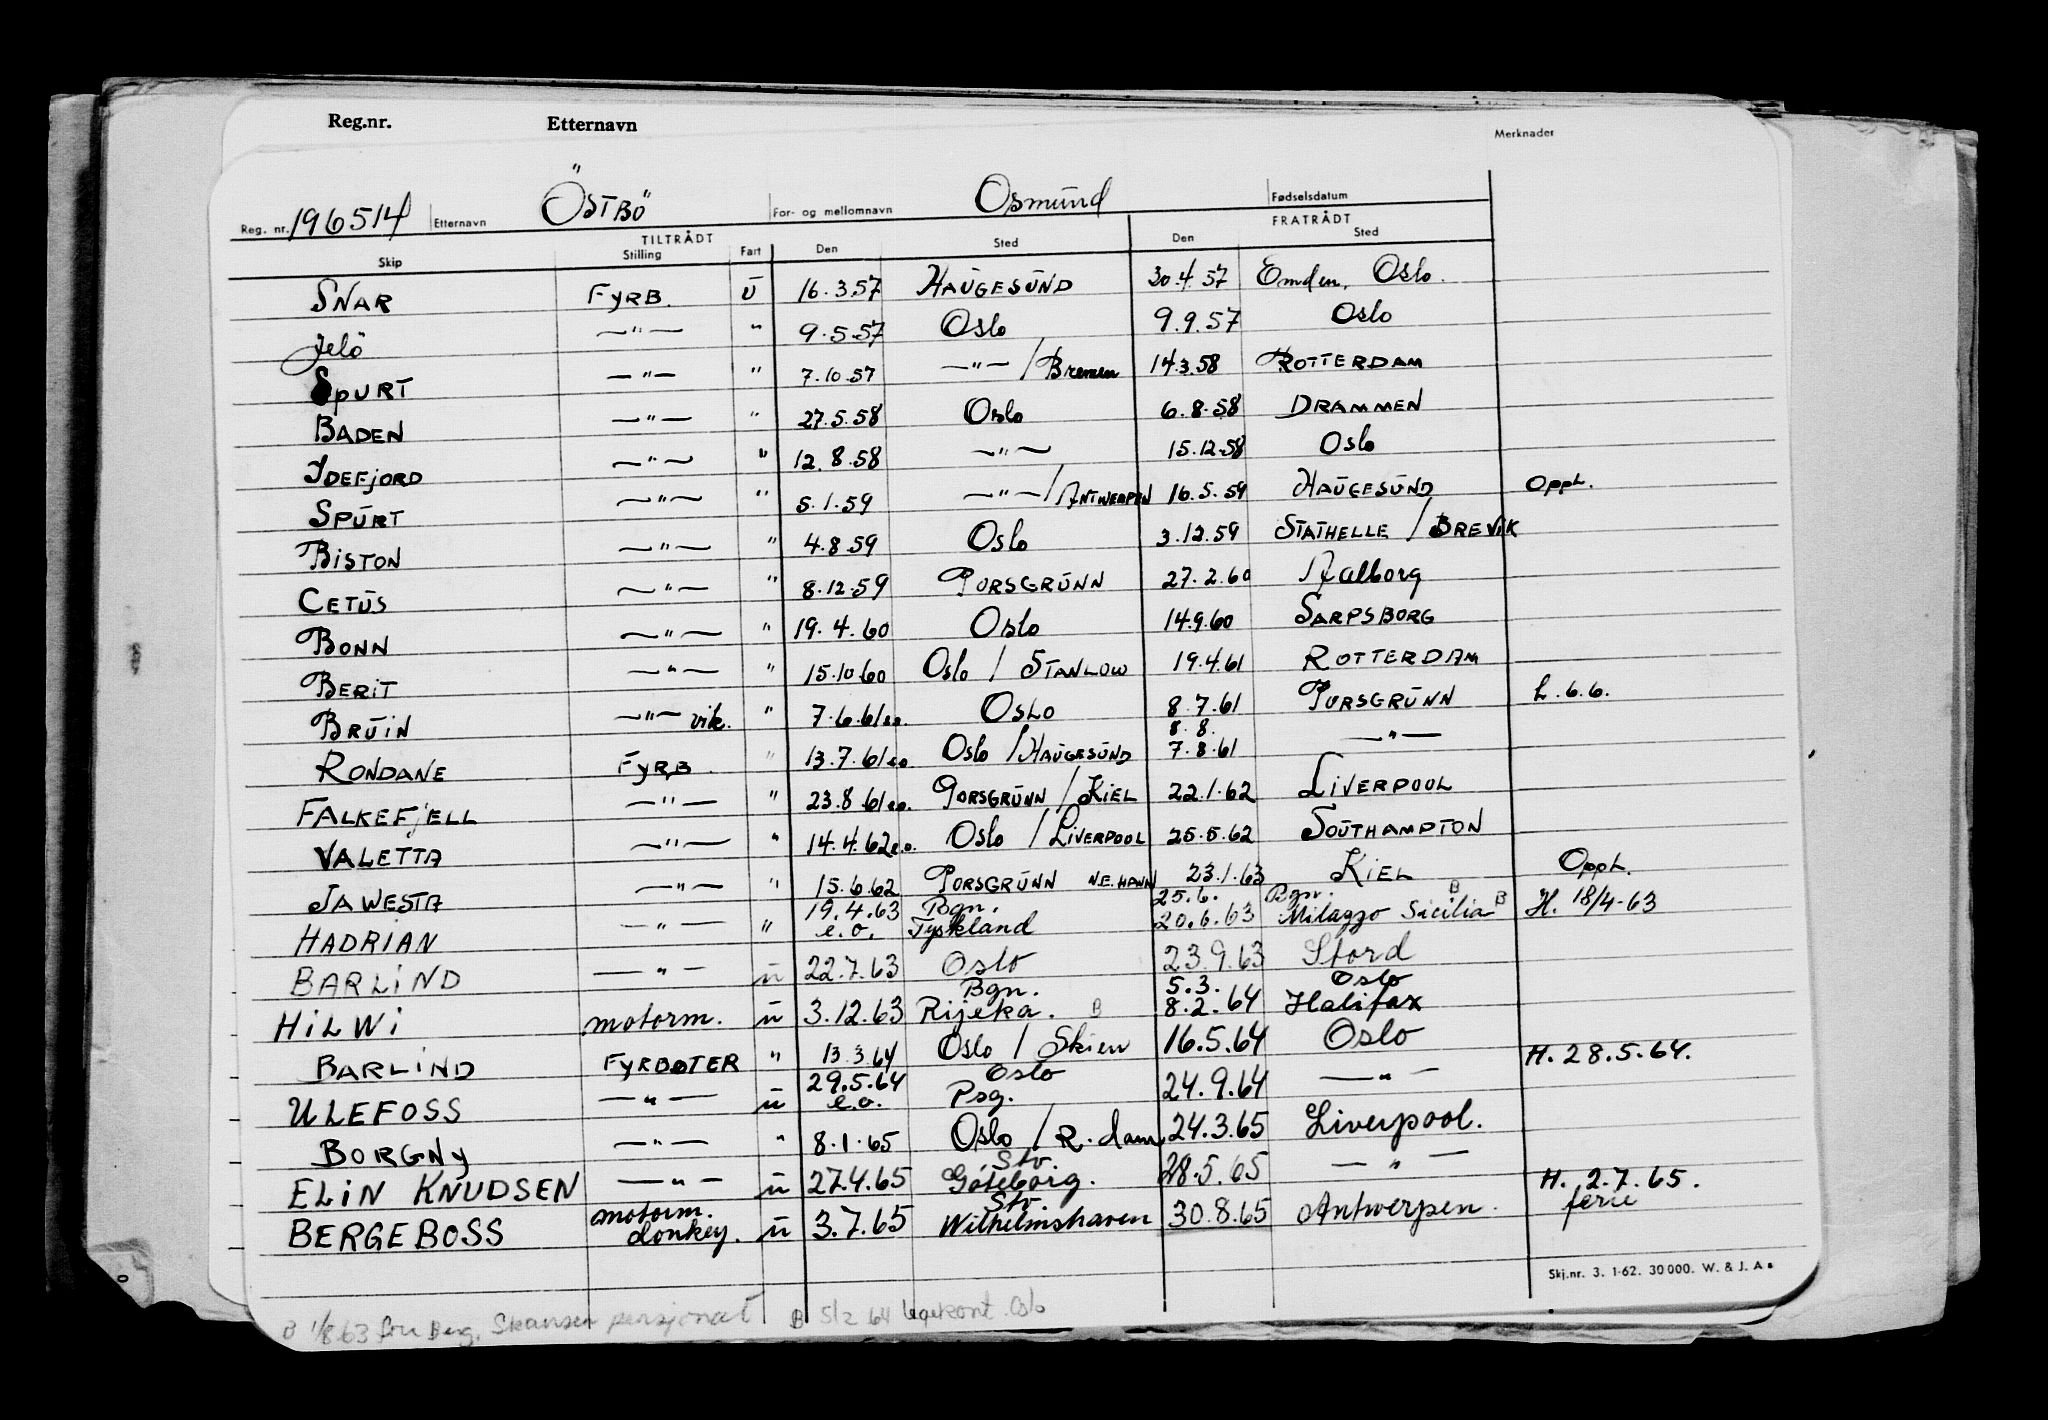 Reg.nr. Etternavn
Merknader
Reg. nr. 196514 Etternavn ÖSTBÖ For- og mellomnavn Osmund Fødselsdatum
TILTRÅDT FRATRÅDT
Skip Stilling Fart Den Sted Den Sted
SNAR FYRB. U 16.3.57 HAUGESUND 30.4.57 Emden, Oslo.
Jelö —"— " 9.5.57 Oslo 9.9.57 Oslo
SPURT —"— " 7.10.57 —"— / Bremen 14.3.58 ROTTERDAM
BADEN —"— " 27.5.58 Oslo 6.8.58 DRAMMEN
IDEFJORD —"— " 12.8.58 —"— 15.12.58 Oslo
SPURT —"— " 5.1.59 —"— / ANTWERPEN 16.5.59 HAUGESUND Opph.
BISTON —"— " 4.8.59 Oslo 3.12.59 STATHELLE / BREVIK
CETUS —"— " 8.12.59 PORSGRUNN 27.2.60 Aalborg
BONN —"— " 19.4.60 Oslo 14.9.60 SARPSBORG
BERIT —"— " 15.10.60 Oslo / STANLOW 19.4.61 ROTTERDAM
BRUIN —"— vik. " 7.6.61 e.o. OSLO 8.7.61 PORSGRUNN L. 6.6.
8.8.
RONDANE FYRB. " 13.7.61 e.o. Oslo / HAUGESUND 7.8.61 —"—
FALKEFJELL —"— " 23.8.61 e.o. PORSGRUNN / KIEL 22.1.62 LIVERPOOL
VALETTA —"— " 14.4.62 e.o. Oslo / LIVERPOOL 25.5.62 SOUTHAMPTON
JAWESTA —"— " 15.6.62 PORSGRUNN 23.1.63 KIEL Opph.
19.4.63 Bgn. 25.6. Bgn. B
HADRIAN —"— " e.o. Tyskland 20.6.63 Milazzo Sicilia B H. 18/4-63
BARLIND —"— u 22.7.63 Oslo 23.9.63 Stord
Bgn. 5.3. Oslo
HILWI motorm. u 3.12.63 Rijeka. B 8.2.64 Halifax
BARLIND FYRBØTER " 13.3.64 Oslo / Skien 16.5.64 Oslo
29.5.64 Oslo H. 28.5.64.
ULEFOSS —"— u e.o. Psg. 24.9.64 —"—
BORGNY —"— " 8.1.65 Oslo / R.dam 24.3.65 Liverpool.
Stv.
ELIN KNUDSEN —"— u 27.4.65 Göteborg. 28.5.65 —"— H. 2.7.65.
motorm. Stv. ferie
BERGEBOSS donkey. u 3.7.65 Wilhelmshaven 30.8.65 Antwerpen.
Skj.nr. 3. 1-62. 30 000. W. & J. A s
B 1/8 63 fru Berg, Skansen pensjonat B 5/2 64 legekont. Oslo